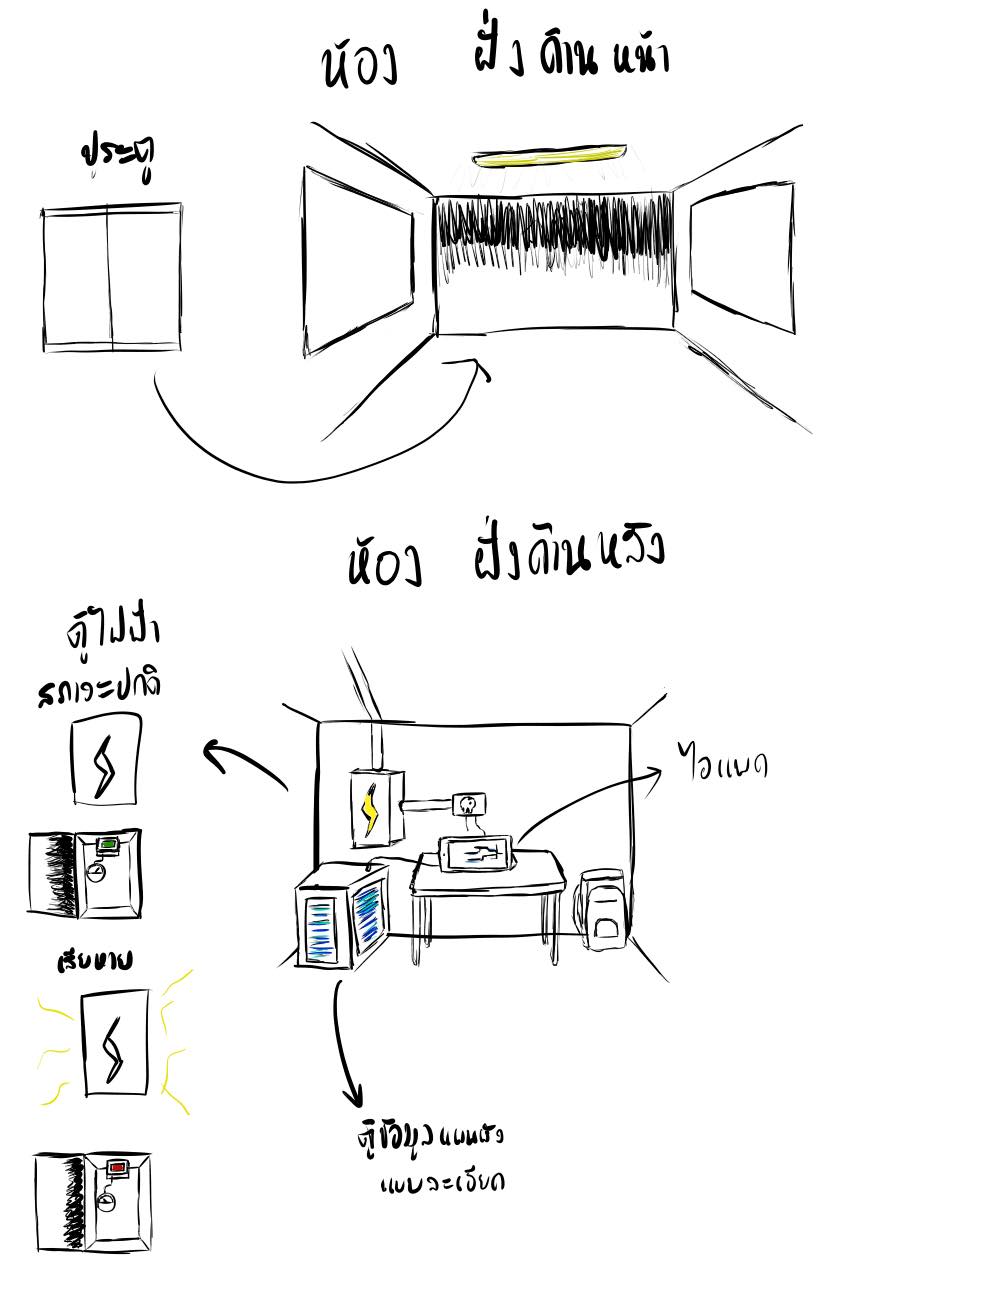 ห้อง ฝั่งด้านหน้า
ประตู
ห้อง ฝั่งด้านหลัง
ตู้ไฟฟ้า
สภาวะปกติ
ไอแพด
เสียหาย
ตู้ข้อมูลแผนผัง
แบบละเอียด